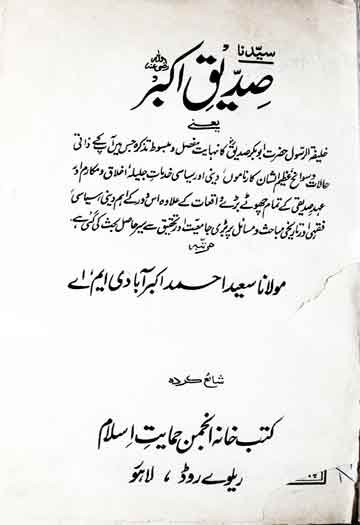 سیّدنا
صدّیقِ اکبرؓ
یعنی
خلیفۃ الرسول حضرت ابوبکر صدیقؓ کا نہایت مفصل و مبسوط تذکرہ جس میں آپ کے ذاتی
حالات و سوانح عظیم الشان کارناموں دینی اور سیاسی خدمات جلیلہ اخلاق و مکارم اور
عہد صدیقی کے تمام چھوٹے بڑے واقعات کے علاوہ اس دور کے اہم دینی، سیاسی
فقہی اور تاریخی مباحث و مسائل پر بڑی جامعیت اور تحقیق سے سیر حاصل بحث کی گئی ہے۔
مرتبہ
مولانا سعید احمد اکبر آبادی ایم اے
شائع کردہ
کتب خانہ انجمن حمایتِ اسلام
ریلوے روڈ ، لاہور